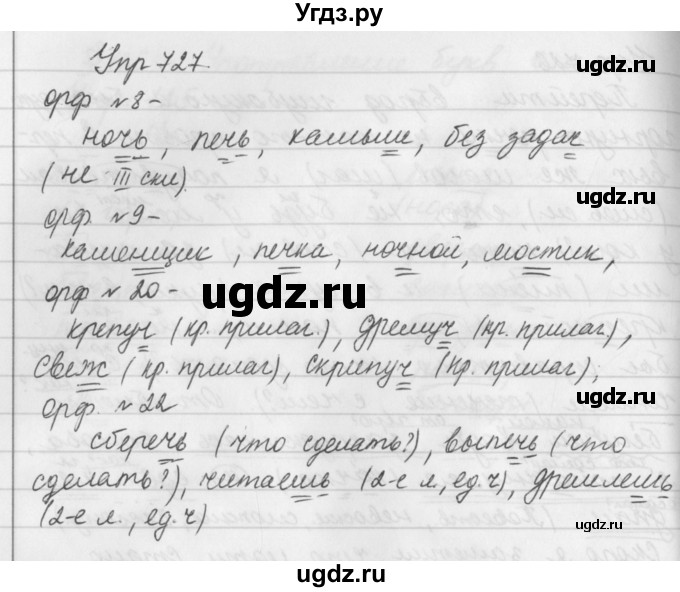 Угдз.ру
Упр 727.
ugdz.ru
орф №8-
ночь, печь, камыш, без задач
ugdz.ru
(не III скл).
ugdz.ru
орф №9-
каменщик, печка, ночной, мостик,
ugdz.ru
орф №20-
ugdz.ru
крепуч (кр. прилаг.), дремуч (кр. прилаг),
свеж (кр. прилаг), скрипуч (кр. прилаг);
ugdz.ru
орф. №22
сберечь (что сделать?), выпечь (что
сделать?), читаешь (2-е л, ед. ч), дремлешь
(2-е л., ед. ч)
ugdz.ru
ugdz.ru